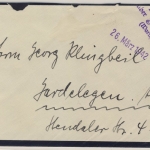 26. März 1942
Herrn Georg Klingbeil
Gardelegen
Stendaler Str. 4